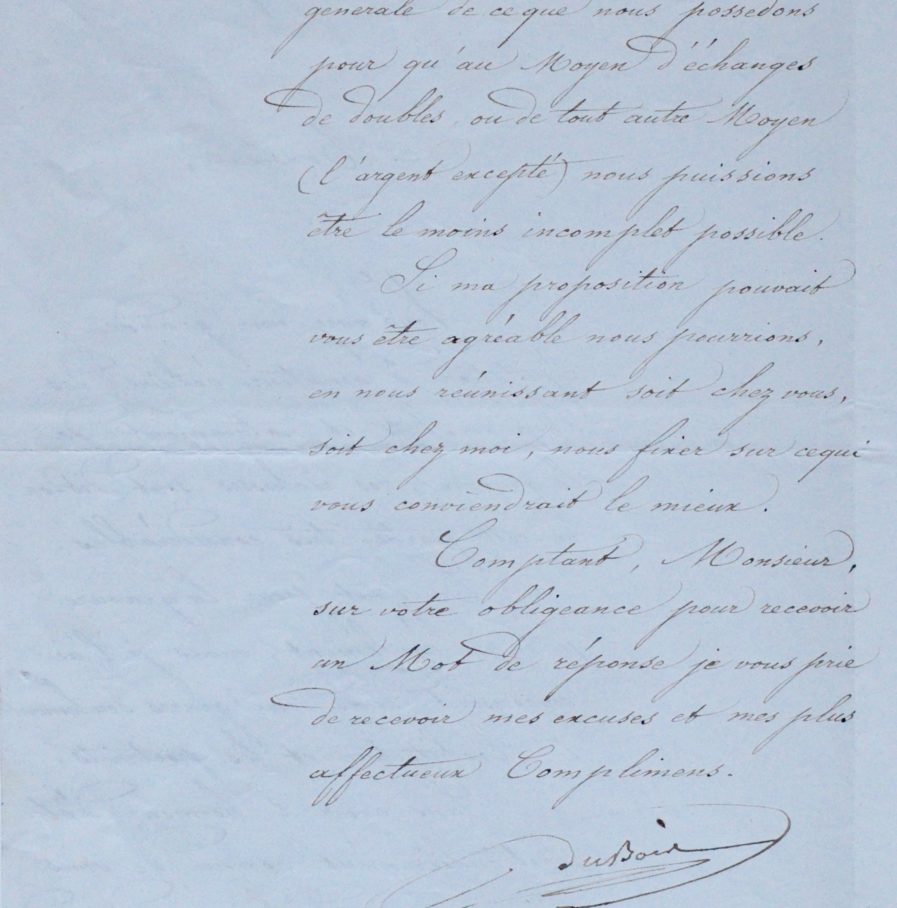 generale de ce que nous possedons
pour qu'au Moyen d'échanges
de doubles, ou de tout autre Moyen
(l'argent excepté) nous puissions
être le moins incomplet possible.
Si ma proposition pouvait
vous être agréable nous pourrions,
en nous réunissant soit chez vous,
soit chez moi, nous fixer sur cequi
vous conviendrait le mieux.
Comptant, Monsieur,
sur votre obligeance pour recevoir
un Mot de réponse je vous prie
de recevoir mes excuses et mes plus
affectueux Complimens.
duBois